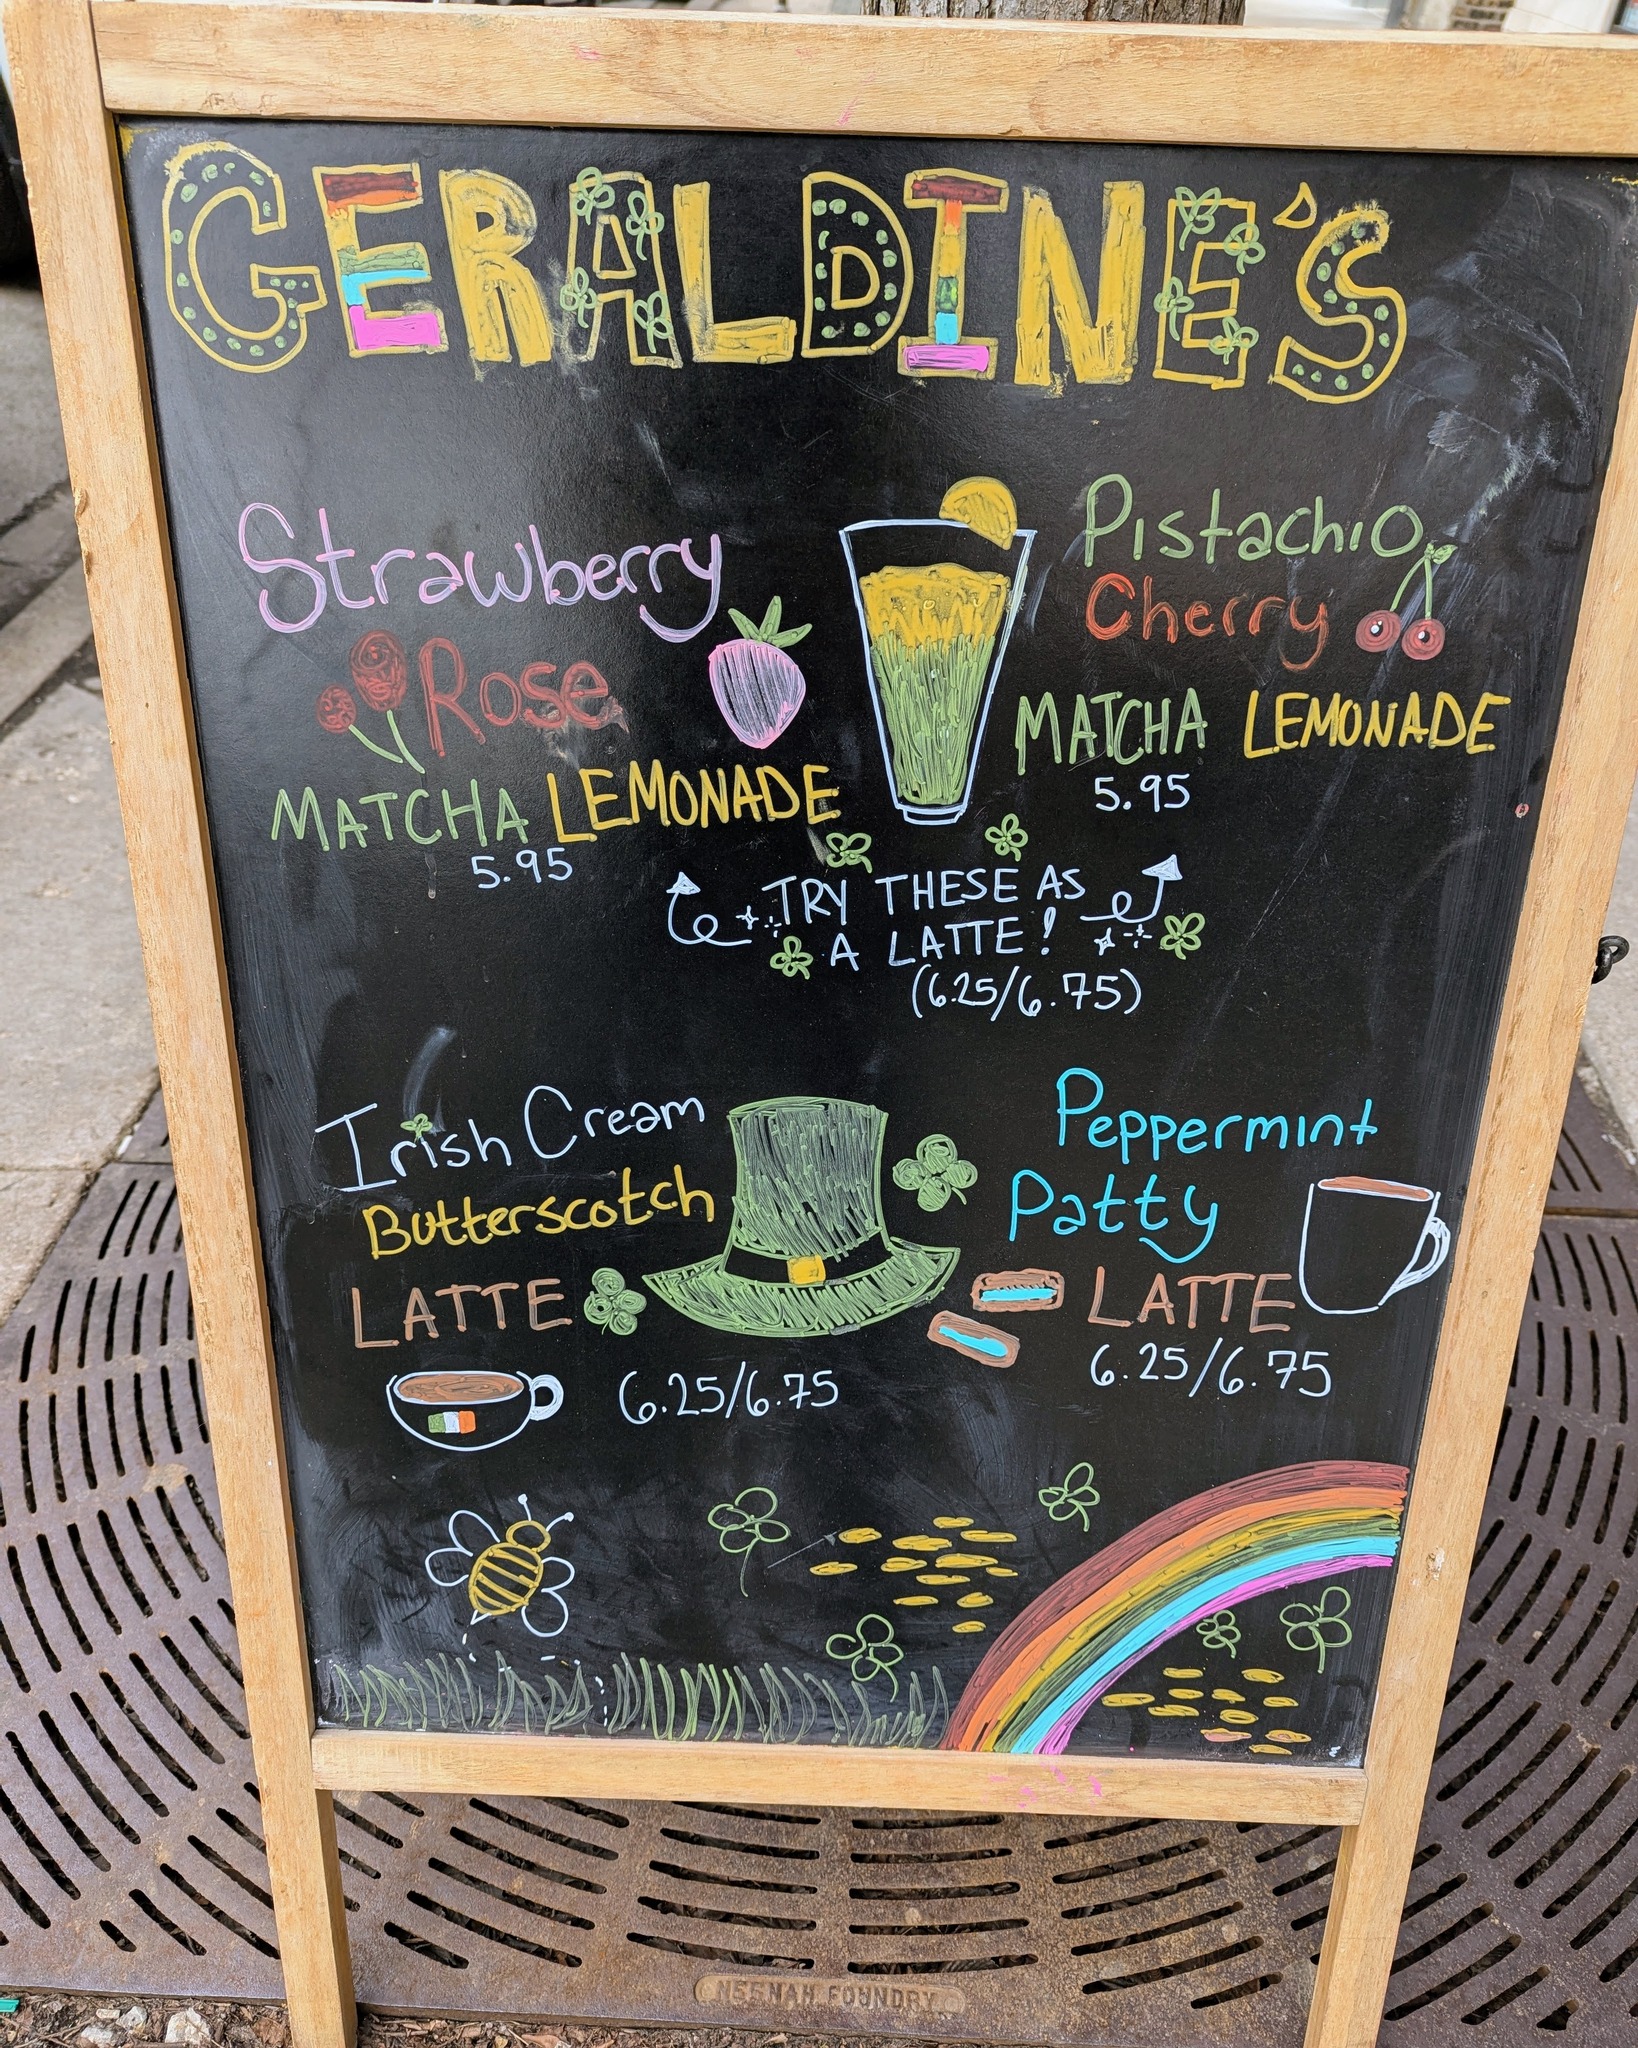 GERALDINE'S
Strawberry
Rose
MATCHA LEMONADE
5.95
Pistachio
Cherry
MATCHA LEMONADE
5.95
TRY THESE AS
A LATTE!
(6.25/6.75)
Irish Cream
Butterscotch
LATTE
6.25/6.75
Peppermint
Patty
LATTE
6.25/6.75
NEENAH FOUNDRY